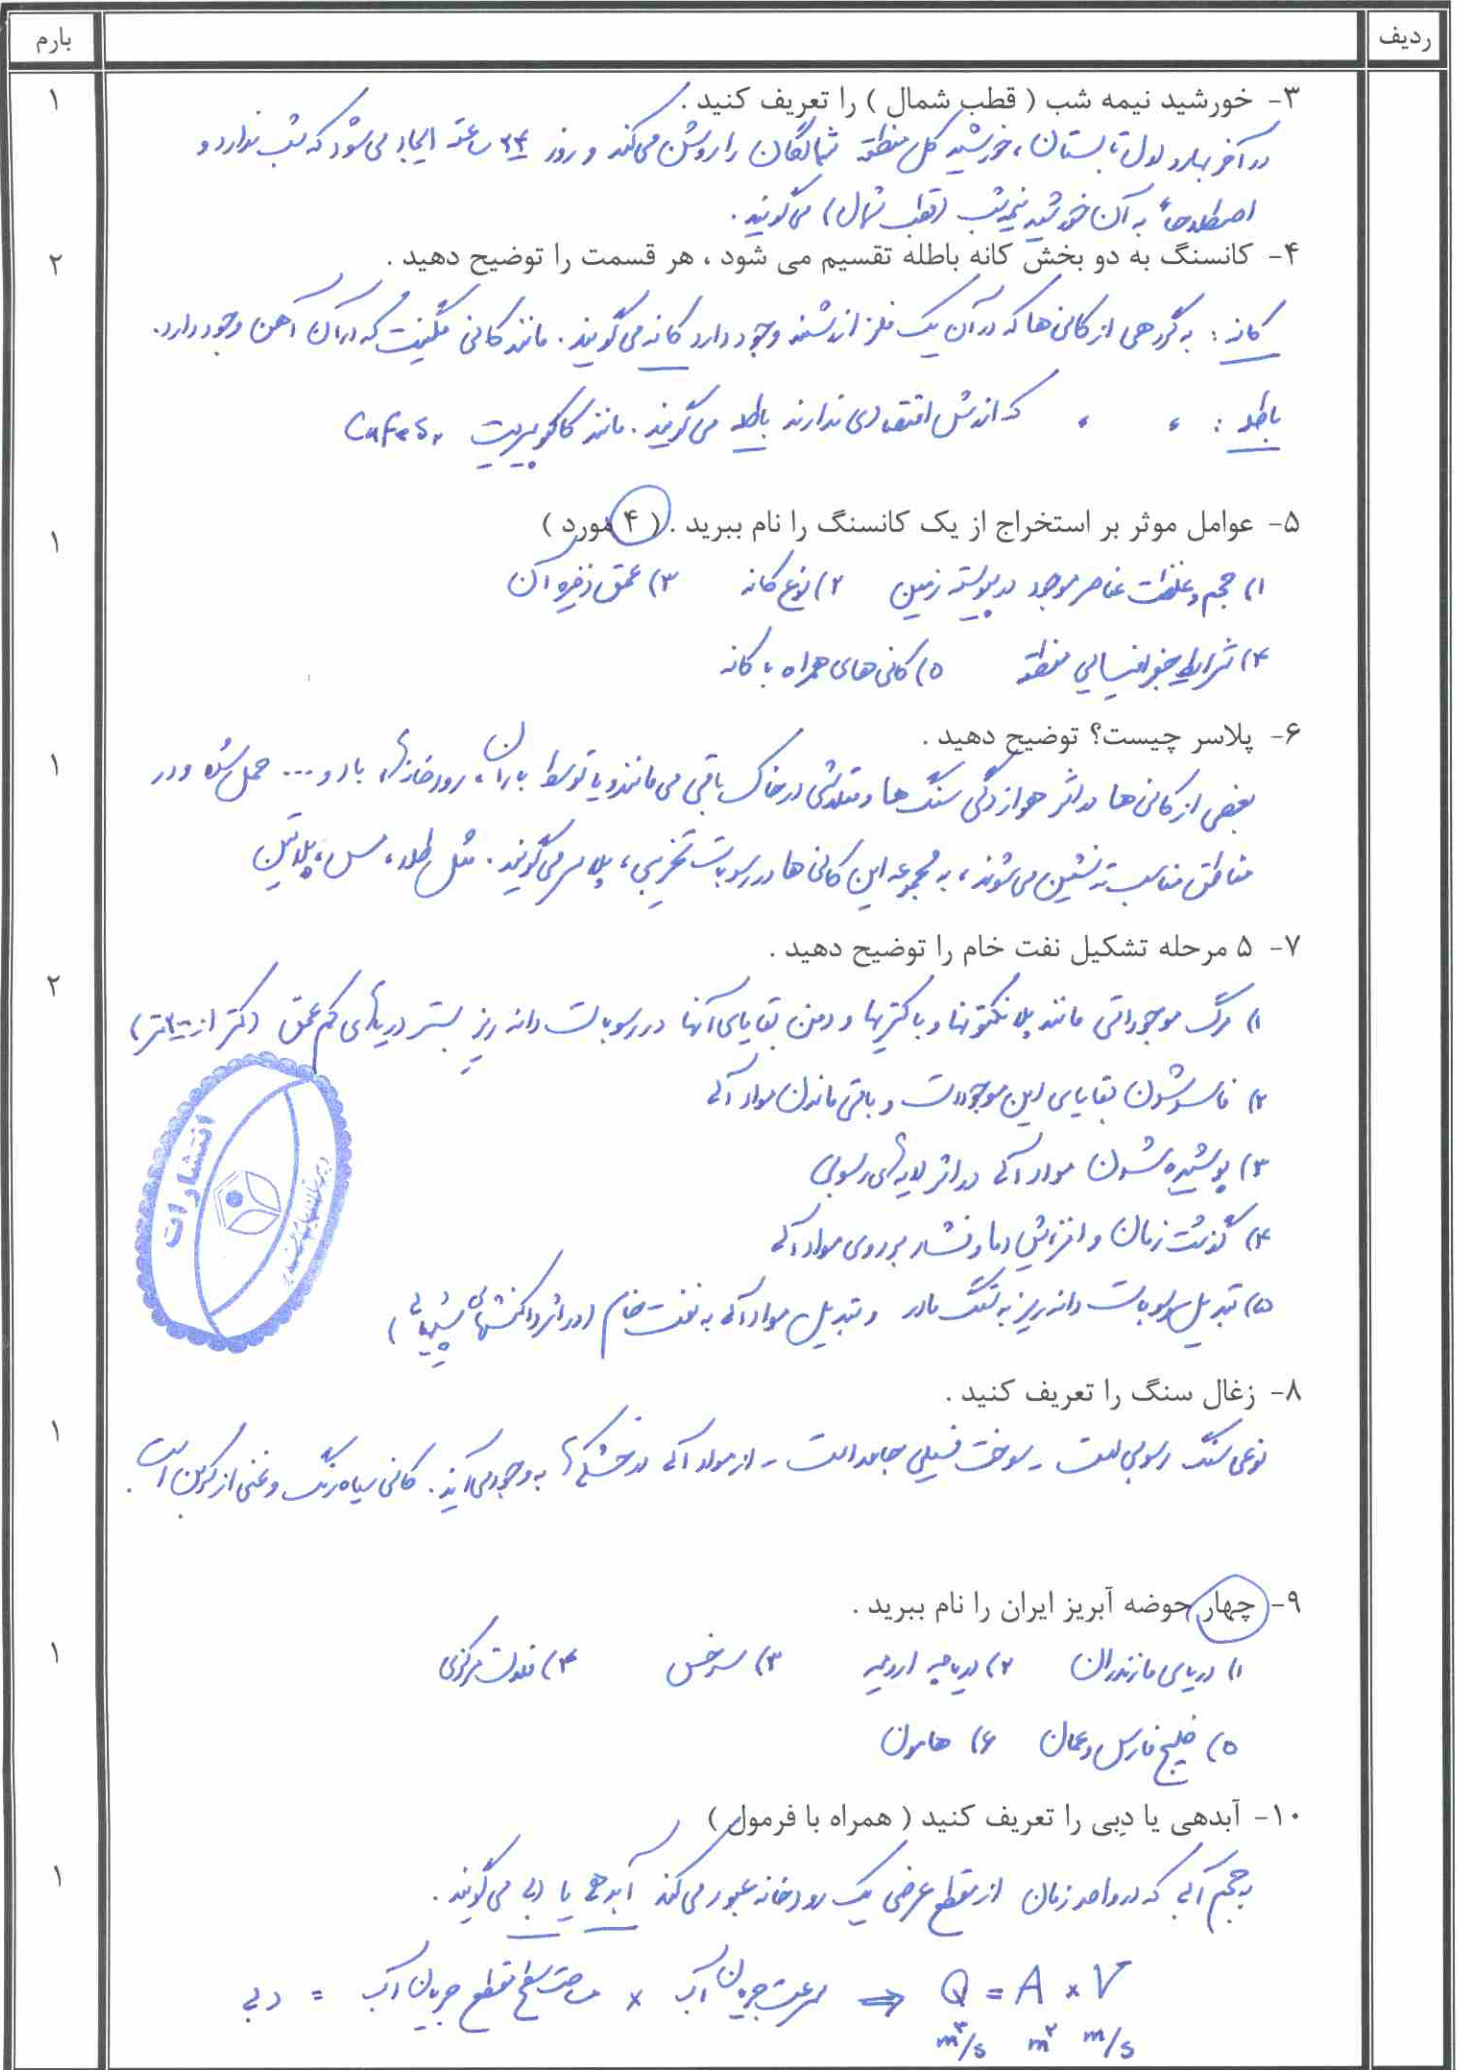 ردیف
بارم
۳- خورشید نیمه شب ( قطب شمال ) را تعریف کنید .
۱
در آخر بهار و اول تابستان، خورشید کل منطقه شمالگان را روشن می‌کند و روز ۲۴ ساعته ایجاد می‌شود که شب ندارد و
اصطلاحاً به آن خورشید نیمه شب (قطب شمال) می‌گویند.
۴- کانسنگ به دو بخش کانه باطله تقسیم می شود ، هر قسمت را توضیح دهید .
۲
کانه : به گروهی از کانی‌ها که در آن یک فلز ارزشمند وجود دارد کانه می‌گویند. مانند کانی مگنیت که در آن آهن وجود دارد.
باطله : " " که ارزش اقتصادی ندارند باطله می‌گویند. مانند کالکوپیریت CuFeS۲
۵- عوامل موثر بر استخراج از یک کانسنگ را نام ببرید . ( ۴ مورد )
۱
۱) حجم و غلظت عناصر موجود در پوسته زمین ۲) نوع کانه ۳) عمق ذخیره آن
۴) شرایط جغرافیایی منطقه ۵) کانی‌های همراه با کانه
۶- پلاسر چیست؟ توضیح دهید .
۱
بعضی از کانی‌ها در اثر هوازدگی سنگ‌ها و متلاشی در خاک باقی می‌مانند و یا توسط باران، رودخانه‌ها، باد و ... حمل شده و در
مناطق مناسب ته نشین می‌شوند، به مجموعه این کانی‌ها در رسوبات تخریبی، پلاسر می‌گویند. مثل طلا، مس، پلاتین
۷- ۵ مرحله تشکیل نفت خام را توضیح دهید .
۲
۱) مرگ موجوداتی مانند پلانکتونها و باکتریها و دفن بقایای آنها در رسوبات دانه ریز بستر دریاهای کم عمق (کمتر از ۲۰۰ متر)
۲) فاسد شدن بقایای این موجودات و باقی ماندن مواد آلی
۳) پوشیده شدن مواد آلی در اثر لایه‌های رسوبی
۴) گذشت زمان و افزایش دما و فشار بر روی مواد آلی
۵) تبدیل رسوبات دانه ریز به سنگ مادر و تبدیل مواد آلی به نفت خام (در اثر واکنشهای شیمیایی)
انتشارات
۸- زغال سنگ را تعریف کنید .
۱
نوعی سنگ رسوبی است - سوخت فسیلی جامد است - از مواد آلی در خشکی‌ها به وجود می‌آیند. کانی سیاه رنگ و غنی از کربن است.
۹- چهار حوضه آبریز ایران را نام ببرید .
۱
۱) دریای مازندران ۲) دریاچه ارومیه ۳) سرخس ۴) فلات مرکزی
۵) خلیج فارس و عمان ۶) هامون
۱۰- آبدهی یا دِبی را تعریف کنید ( همراه با فرمول )
۱
به حجم آبی که در واحد زمان از مقطع عرضی یک رودخانه عبور می‌کند آبدهی یا دبی می‌گویند.
Q = A × V ⇒ سرعت جریان آب × مساحت سطح مقطع جریان آب = دبی
m³/s m² m/s